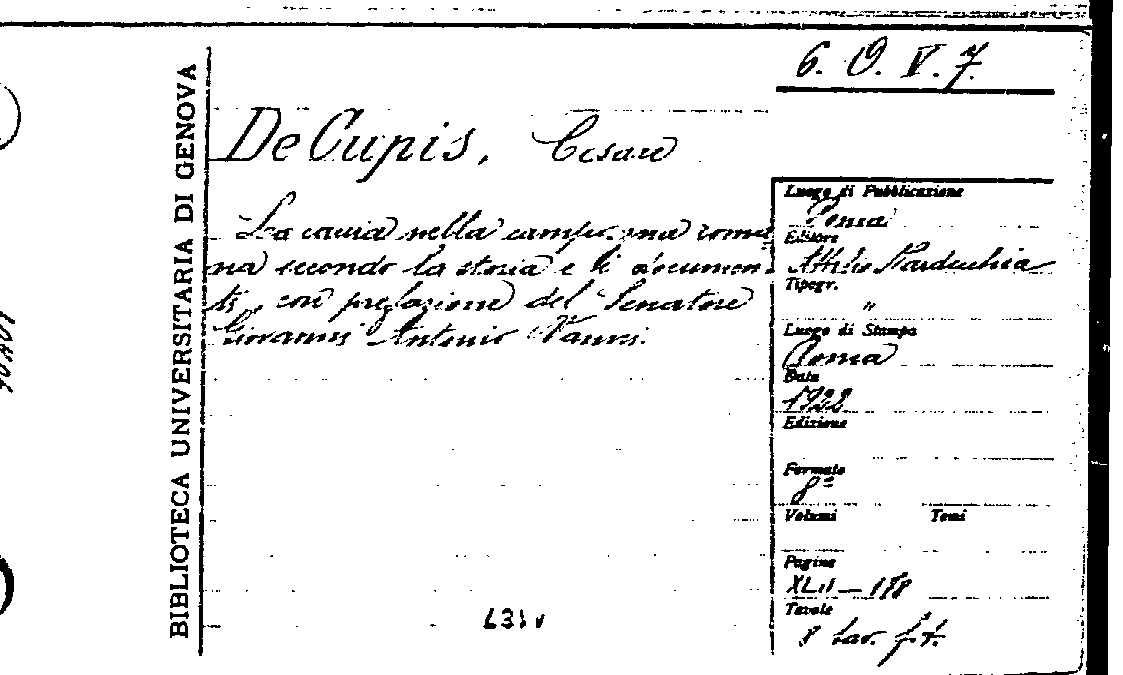 6. O. V. 7.
BIBLIOTECA UNIVERSITARIA DI GENOVA
De Cupis, Cesare
La caccia nella campagna roma
na secondo la storia e li documen
ti, con prefazione del Senatore
Giovanni Antonio Vanni.
Luogo di Pubblicazione
Roma
Editore
Attilio Nardecchia
Tipogr.
"
Luogo di Stampa
Roma
Data
1922
Edizione
Formato
8º
Volumi Tomi
Pagine
XLII — 188
Tavole
8 tav. f. t.